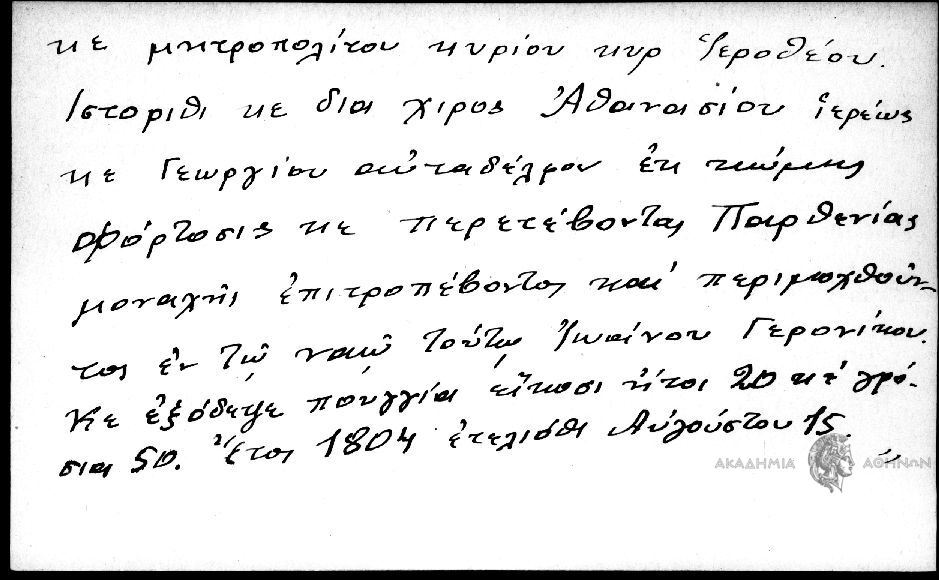 κε μητροπολίτου κυρίου κυρ Ἱεροθέου.
Ἱστορίθι κε δια χιρος Ἀθανασίου ἱερέως
κε Γεωργίου αὐταδέλφου ἐκ κώμης
Φόρτοσις κε περετέβοντας Παρθενίας
μοναχῆς ἐπιτροπέβοντος καί περιμοχθοῦν-
τος ἐν τῷ ναῷ τούτῳ Ἰωάννου Γερονίκου.
Κε ἐξόδεψε πουγγία εἴκοσι ἤτοι 20 κέ γρό-
σια 50. Ἔτος 1804 ἐτελιόθι Αὐγούστου 15.
ΑΚΑΔΗΜΙΑ ΑΘΗΝΩΝ